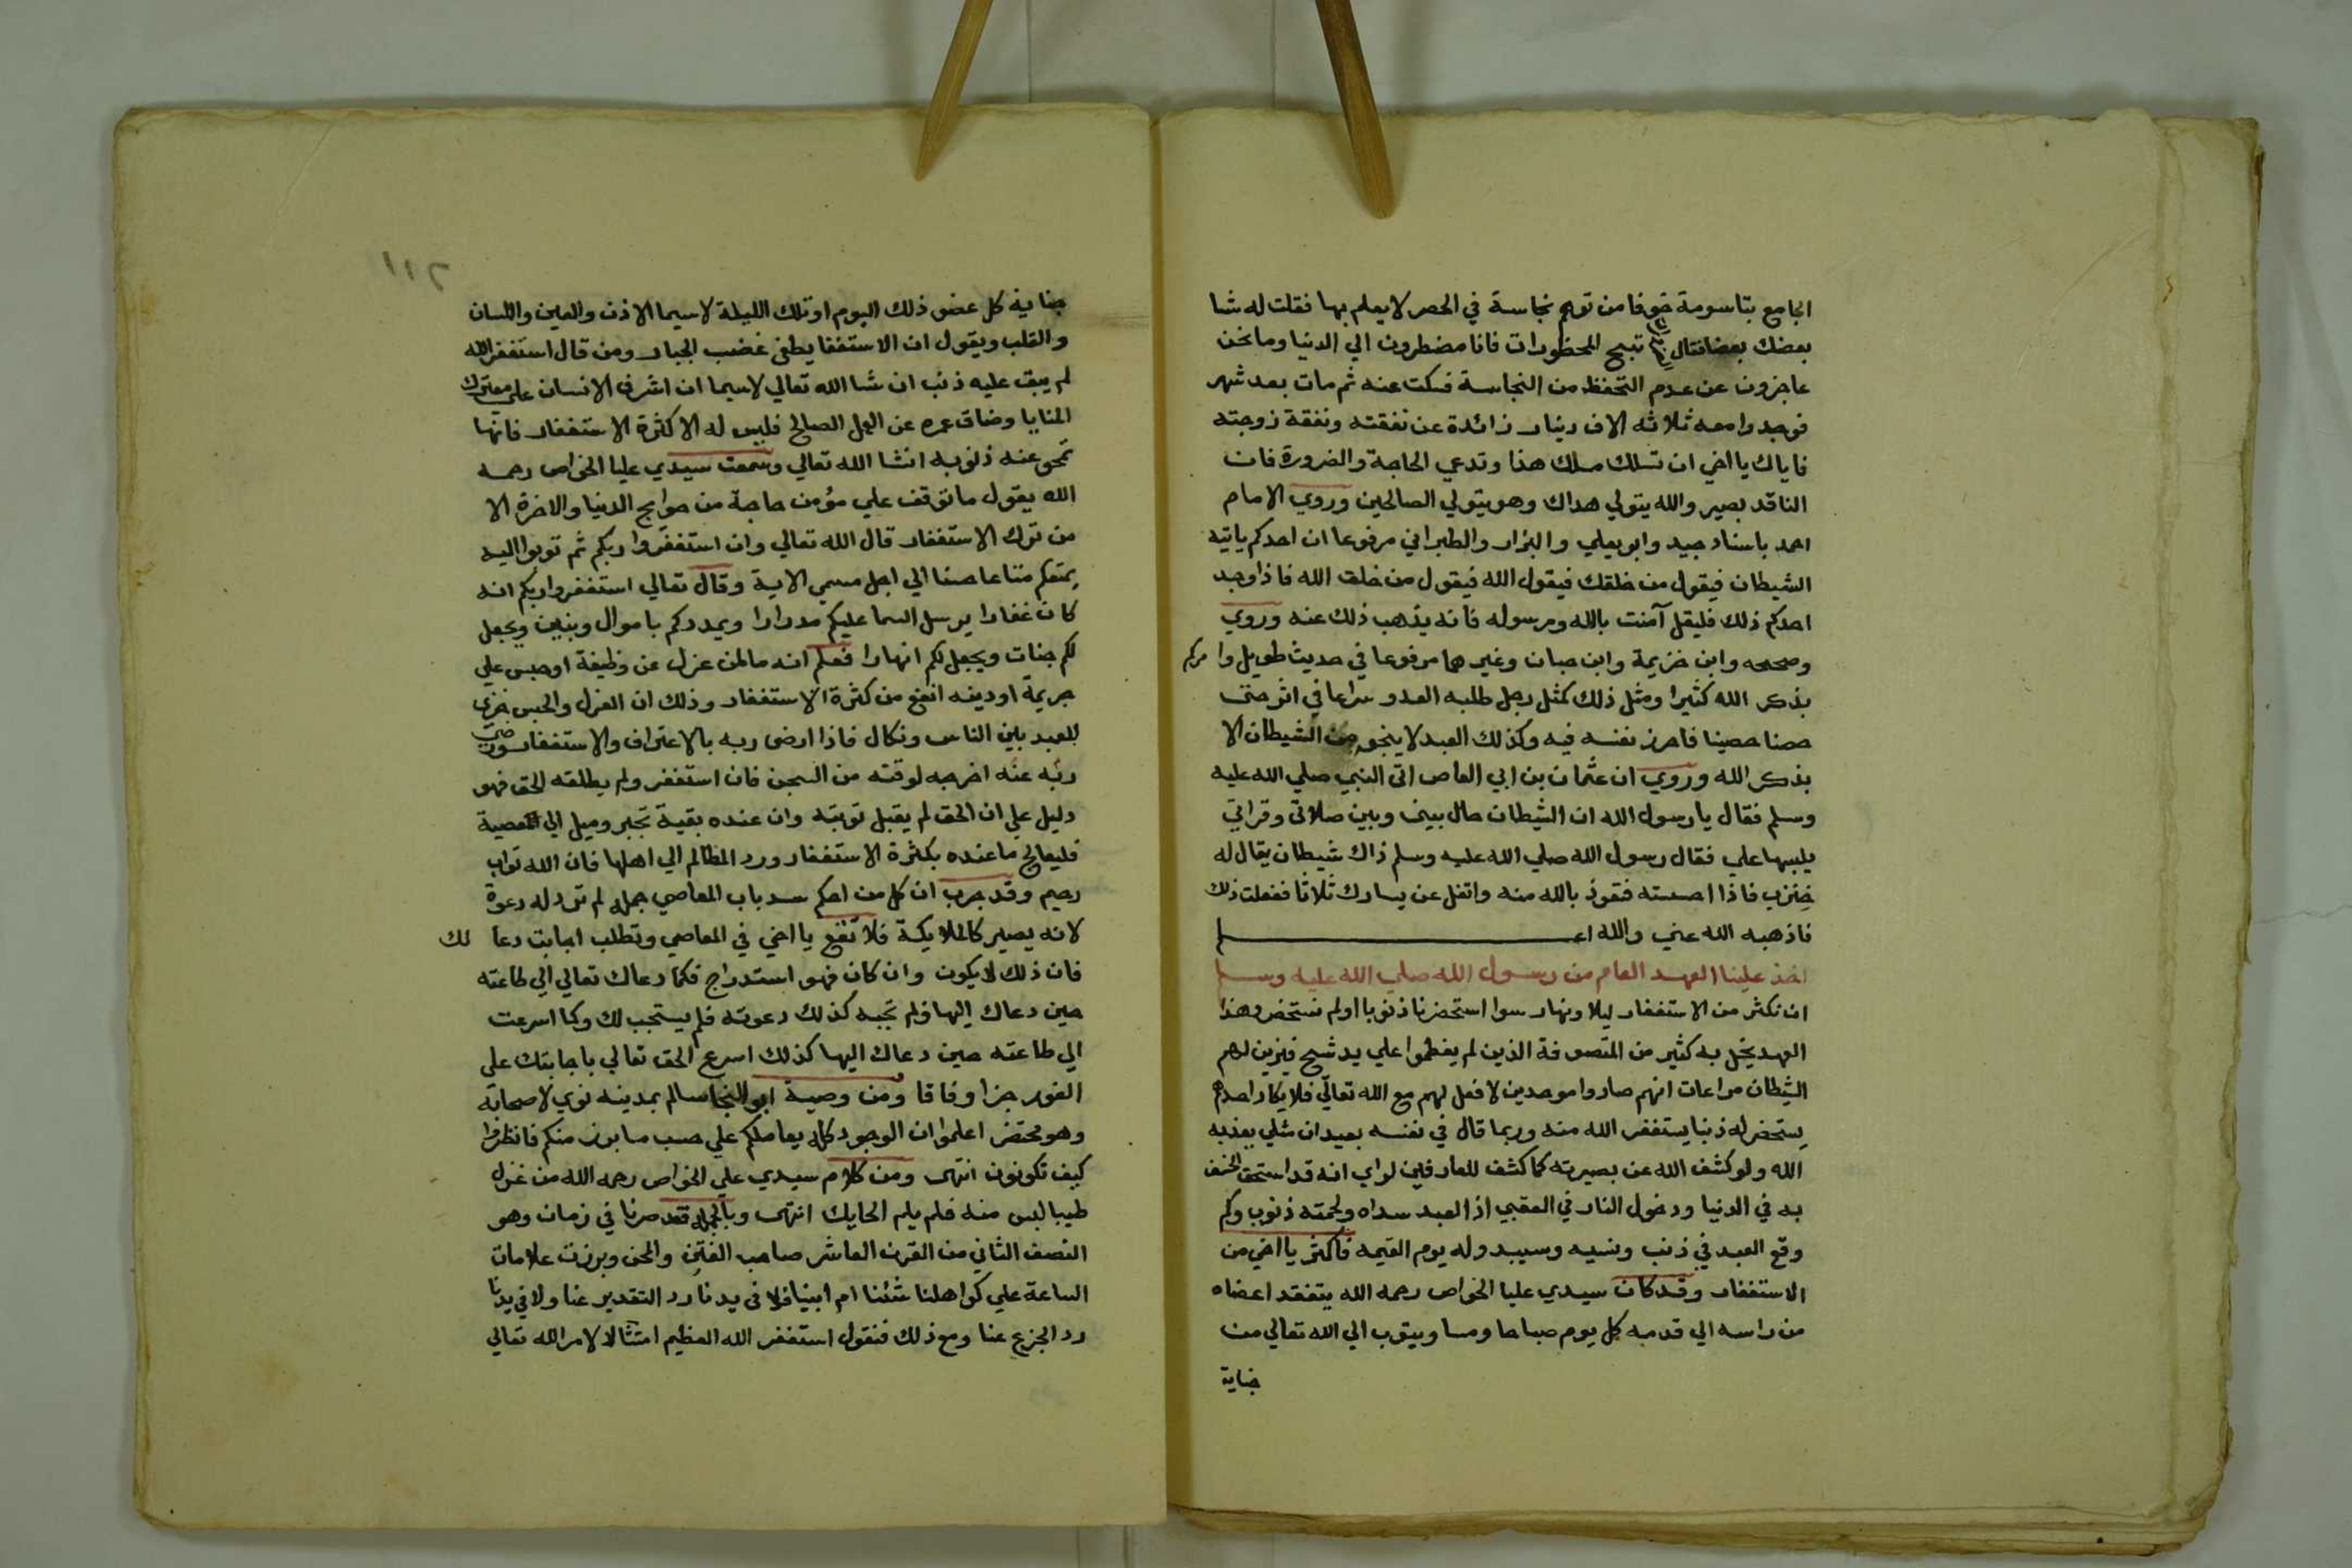 الجامع بتاسومة خوفا من توهم نجاسة في الحصر لا يعلم بها فقلت له شا
بعضك بعضا فقال تبيح المحظورات فانا مضطرون الي الدنيا وما نحن
عاجزون عن عدم التحفظ من النجاسة فسكت عنه ثم مات بعد شهر
فوجدوا معه ثلاثه الاف دينار زائدة عن نفقته ونفقة زوجته
فاياك يا اخي ان تسلك مسلك هذا وتدعي الحاجة والضرورة فان
الناقد بصير والله يتولي هداك وهو يتولي الصالحين وروي الامام
احمد باسناد جيد وابو يعلي والبزار والطبراني مرفوعا ان احدكم ياتيه
الشيطان فيقول من خلقك فيقول الله فيقول من خلق الله فاذا وجد
احدكم ذلك فليقل آمنت بالله ورسوله فانه يذهب ذلك عنه وروي
وصححه وابن خزيمة وابن حبان وغيرهما مرفوعا في حديث طويل وامركم
بذكر الله كثيرا ومثل ذلك كمثل رجل طلبه العدو سراعا في اثره حتى
حصنا حصينا فاحرز نفسه فيه وكذلك العبد لا ينجو من الشيطان الا
بذكر الله وروي ان عثمان بن ابي العاص اتى النبي صلي الله عليه
وسلم فقال يا رسول الله ان الشيطان حال بيني وبين صلاتي وقراتي
يلبسها علي فقال رسول الله صلي الله عليه وسلم ذاك شيطان يقال له
خنزب فاذا احسسته فتعوذ بالله منه واتفل عن يسارك ثلاثا ففعلت ذلك
فاذهبه الله عني والله اعلم
اخذ علينا العهد العام من رسول الله صلي الله عليه وسلم
ان نكثر من الاستغفار ليلا ونهار سوا استحضرنا ذنوبا او لم نستحضر وهذا
العهد يخل به كثير من المتصوفة الذين لم يفطموا علي يد شيخ فيزين لهم
الشيطان مراعات انهم صاروا موحدين لا فعل لهم مع الله تعالي فلا يكاد احدهم
يستحضر له ذنبا يستغفر الله منه وربما قال في نفسه بعيد ان مثلي يعذبه
الله ولو كشف الله عن بصيرته كما كشف للعارفين لراي انه قد استحق الخسف
به في الدنيا ودخول النار في العقبي اذ العبد سداه ولحمته ذنوب وكم
وقع العبد في ذنب ونسيه وسيبدو له يوم القيمه فاكثر يا اخي من
الاستغفار وقد كان سيدي عليا الخواص رحمه الله يتفقد اعضاه
من راسه الي قدمه كل يوم صباحا ومسا ويتوب الي الله تعالي من
جناية
١١٢
جناية كل عضو ذلك اليوم او تلك الليلة لاسيما الاذن والعين واللسان
والقلب ويقول ان الاستغفا يطفي غضب الجبار ومن قال استغفر الله
لم يبق عليه ذنب ان شا الله تعالي لاسيما ان اشرف الانسان على معترك
المنايا وضاق عمره عن العمل الصالح فليس له الا كثرة الاستغفار فانها
تمحو عنه ذنوبه انشا الله تعالي وسمعت سيدي عليا الخواص رحمه
الله يقول ما توقف علي مؤمن حاجة من حوايج الدنيا والاخرة الا
من ترك الاستغفار قال الله تعالي وان استغفروا ربكم ثم توبوا اليه
يمتعكم متاعا حسنا الي اجل مسمي الاية وقال تعالي استغفروا ربكم انه
كان غفارا يرسل السما عليكم مدرارا ويمددكم باموال وبنين ويجعل
لكم جنات ويجعل لكم انهارا فعلم انه ما لمن عزل عن وظيفة او حبس علي
جريمة او دينه انفع من كثرة الاستغفار وذلك ان العزل والحبس خزي
للعبد بين الناس ونكال فاذا ارضى ربه بالاعتراف والاستغفار ورضي
ربه عنه اخرجه لوقته من السجن فان استغفر ولم يطلقه الحق فهو
دليل علي ان الحق لم يقبل توبته وان عنده بقية تجبر وميل الي المعصية
فليعالج ما عنده بكثرة الاستغفار ورد المظالم الي اهلها فان الله تواب
رحيم وقد جرب ان كل من احكم سد باب المعاصي جملة لم ترد له دعوة
لانه يصير كالملايكة فلا تقع يا اخي في المعاصي وتطلب اجابت دعا لك
فان ذلك لا يكون وان كان فهو استدراج فكما دعاك تعالي الي طاعته
حين دعاك اليها فلم تجبه كذلك دعوته فلم يستجب لك وكما اسرعت
الي طاعته حين دعاك اليها كذلك اسرع الحق تعالي باجابتك على
الفور جزا وفاقا ومن وصية ابو النجا سالم بمدينه نوي لاصحابه
وهو محتضر اعلموا ان الوجود كله يعاملكم علي حسب ما برز منكم فانظروا
كيف تكونون انتهى ومن كلام سيدي علي الخواص رحمه الله من غزل
طيبا لبس منه فلم يلم الحايك انتهى وبالجملة فقد صرنا في زمان وهو
النصف الثاني من القرن العاشر صاحب الفتن والمحن وبرزت علامات
الساعة علي كواهلنا شئنا ام ابينا فلا في يدنا رد التقدير عنا ولا في يدنا
رد الجزع عنا ومع ذلك فنقول استغفر الله العظيم امتثالا لامر الله تعالي